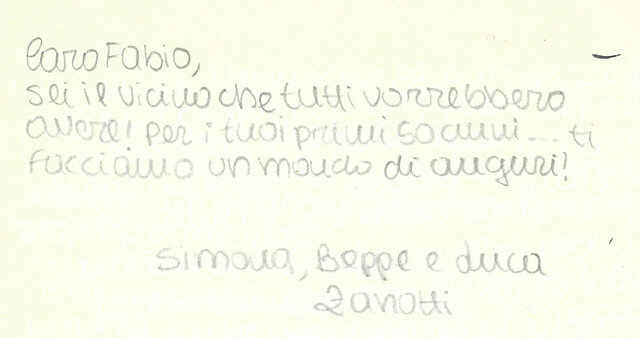 Caro Fabio,
sei il vicino che tutti vorrebbero
avere! per i tuoi primi 50 anni.... ti
facciamo un mondo di auguri!
Simona, Beppe e Luca
Zanotti